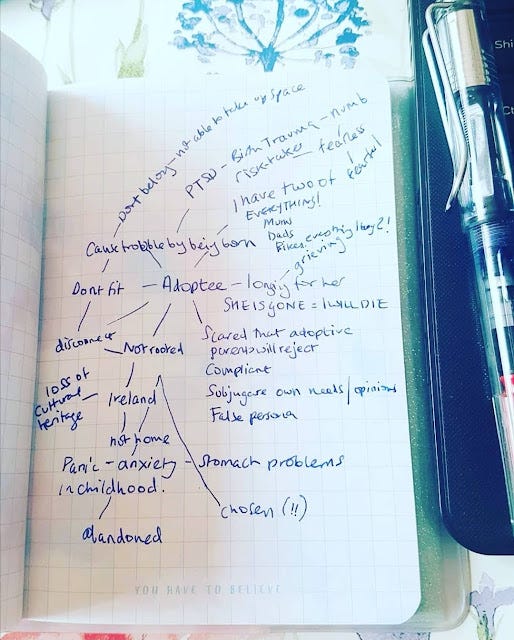 Dont belong - not able to take up space
PTSD - Birth Trauma - numb
risktaker - fearless
fearful
I have two of
EVERYTHING!
Mums
Dads
Bikes, everything I buy 2!
Cause trobble by being born
grieving
Dont fit - Adoptee - longing for her
SHE IS GONE = I WILL DIE
disconnect
Not rooted
Scared that adoptive
parents will reject
Compliant
Subjugate own needs/opinions
False persona
loss of
cultural
heritage
Ireland
not home
Panic - anxiety - Stomach problems
in childhood.
Chosen (!!)
abandoned
YOU HAVE TO BELIEVE
Shi